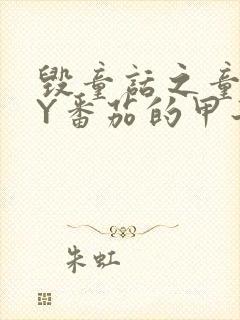 毁童话之童
Y番茄的甲
朱虹